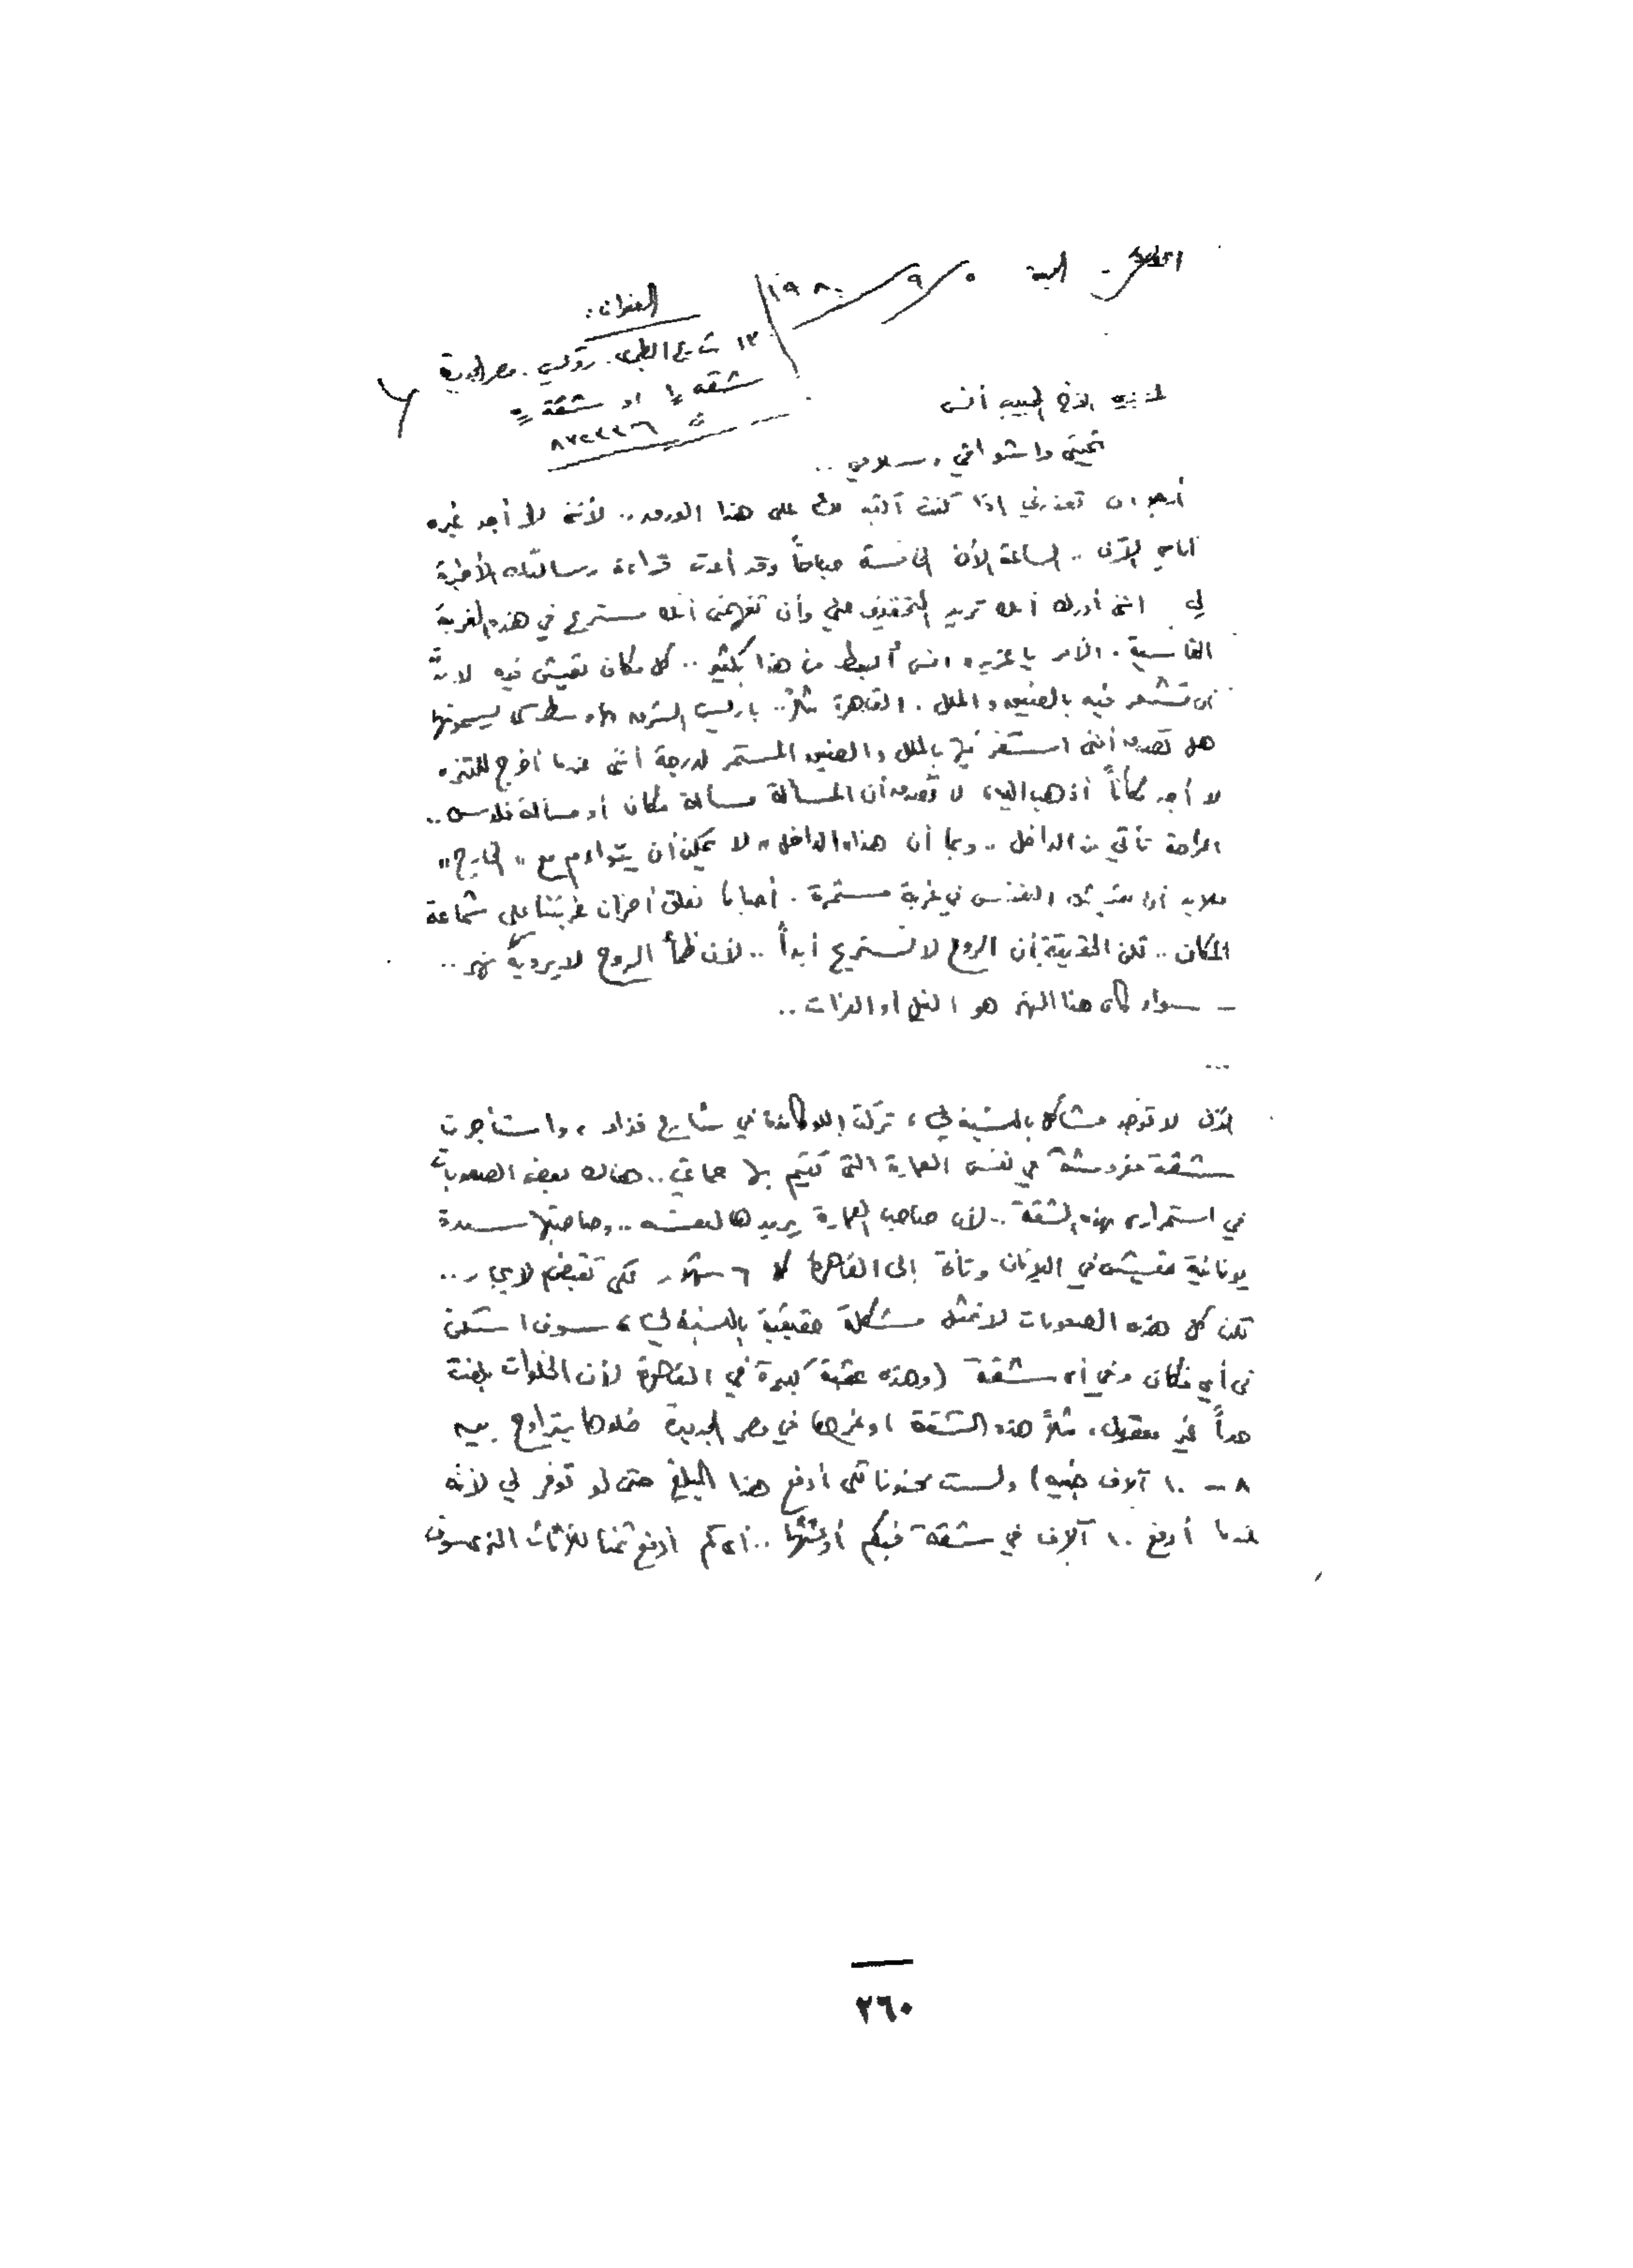 القاهرة - الجمعة ٥/٩/١٩٨٠
العنوان:
١٣ شارع الطبري. روكسي. مصر الجديدة
شقة ١ او شقة
ت
العزيز الاخ الحبيب أنس
تحيتي واشواقي وسلامي ..
أرجو ان تعذرني اذا كنت أكتب لك على هذا الورق .. لأنني لا أجد غيره
امامي الآن .. الساعة الآن الخامسة صباحاً وقد أعدت قراءة رسالتك الأخيرة
لي انني أدرك أنك تريد التخفيف عني وأن تفهمني أنك مستريح في هذه الغربة
القاسية . الأمر يا عزيزي انس أبسط من هذا بكثير .. كل مكان نعيش فيه لا بدّ
ان نشعر فيه بالضيق والملل . القاهرة مثلاً .. باريس الشرق الأوسط كما يسمونها
هل تصدق أنني أشعر فيها بالملل والضيق المستمر لدرجة أنني عندما أخرج للتنزه
لا أجد مكاناً أذهب اليه، لا تصدق أن المسألة مسألة مكان أو مسألة فلوس ..
الراحة تأتي من الداخل .. وبما أن هذا "الداخل" لا يمكن أن يتواءم مع "الخارج"
فلابد أن تعيش النفس في غربة مستمرة . أحيانا نعلق أحزان غربتنا على شماعة
المكان .. لكن الحقيقة أن الروح لا تستريح أبداً .. لأن ظمأ الروح لا يرويه نهر ..
- سواء كان هذا النهر هو النيل أو الفرات ..
...
الآن لا توجد مشاكل بالنسبة لي، تركت اللوكاندة في شارع فؤاد، واستأجرت
شقة مفروشة في نفس العمارة التي تقيم بها حماتي .. هناك بعض الصعوبات
في استمراري بهذه الشقة .. لأن صاحب العمارة يريدها لنفسه .. وصاحبتها سيدة
يونانية تعيش في اليونان وتأتي إلى القاهرة كل ٦ شهور لكي تقبض الايجار ..
لكن كل هذه الصعوبات لا تمثل مشكلة حقيقية بالنسبة لي، سوف اسكن
في أي مكان وفي أي شقة (وهذه عقبة كبيرة في القاهرة لأن الخلوات بلغت
حداً غير معقول، مثلاً هذه الشقة او غيرها في مصر الجديدة خلوها يتراوح بين
٨ - ١٠ آلاف جنيه) ولست مجنونا لكي أدفع هذا المبلغ حتى لو توفر لي لأنه
عندما أدفع ١٠ آلاف في شقة فبكم أؤثثها .. أي كم أدفع ثمنا للأثاث الذي سوف
٢٦٠